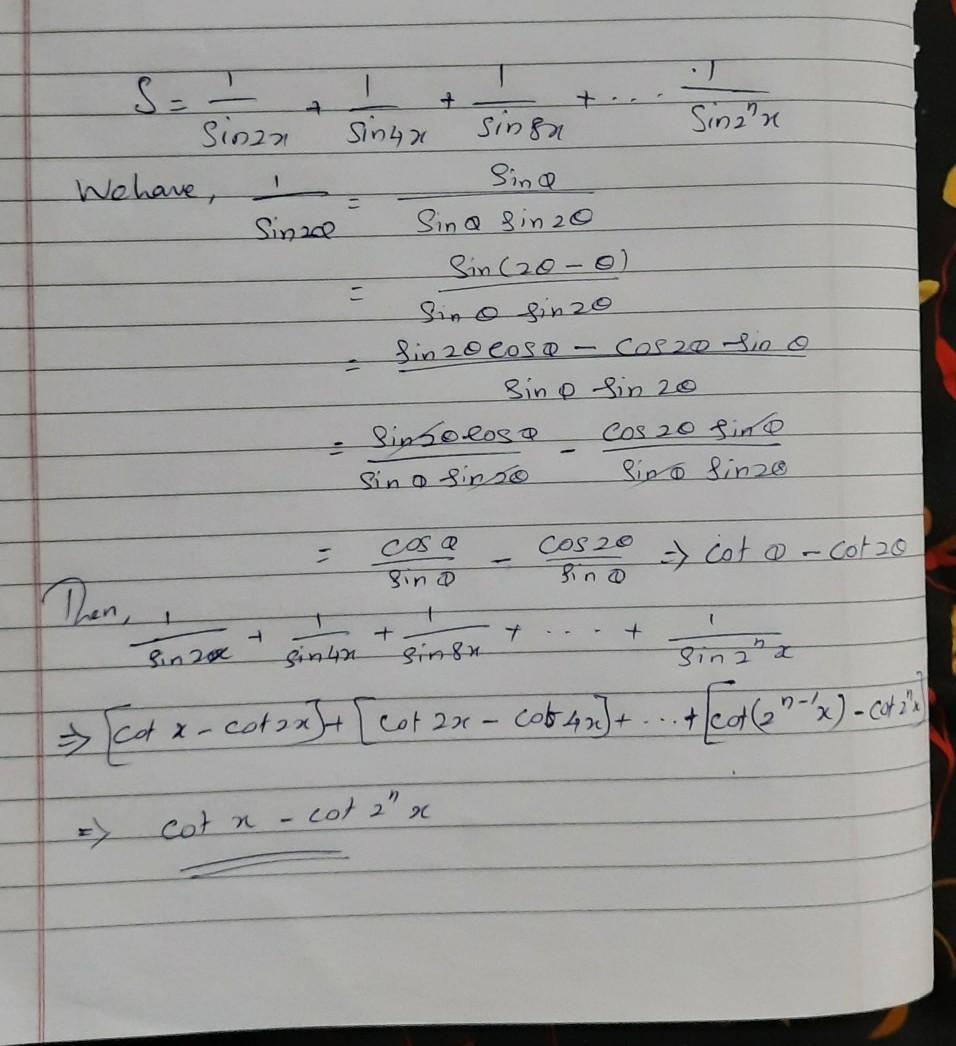 S = 1/Sin2x + 1/Sin4x + 1/Sin8x + ... 1/Sin2ⁿx
We have, 1/Sin2θ = Sinθ/Sinθ Sin2θ
= Sin(2θ - θ)/Sinθ Sin2θ
= Sin2θ cosθ - Cos2θ Sinθ/Sinθ Sin2θ
= Sin2θ cosθ/Sinθ Sin2θ - Cos2θ Sinθ/Sinθ Sin2θ
= Cosθ/Sinθ - Cos2θ/Sinθ ⇒ Cotθ - Cot2θ
Then, 1/Sin2x + 1/Sin4x + 1/Sin8x + .... + 1/Sin2ⁿx
⇒ [Cot x - cot2x] + [Cot 2x - Cot 4x] + ... + [Cot(2ⁿ⁻¹x) - Cot2ⁿx]
⇒ Cot x - cot 2ⁿx